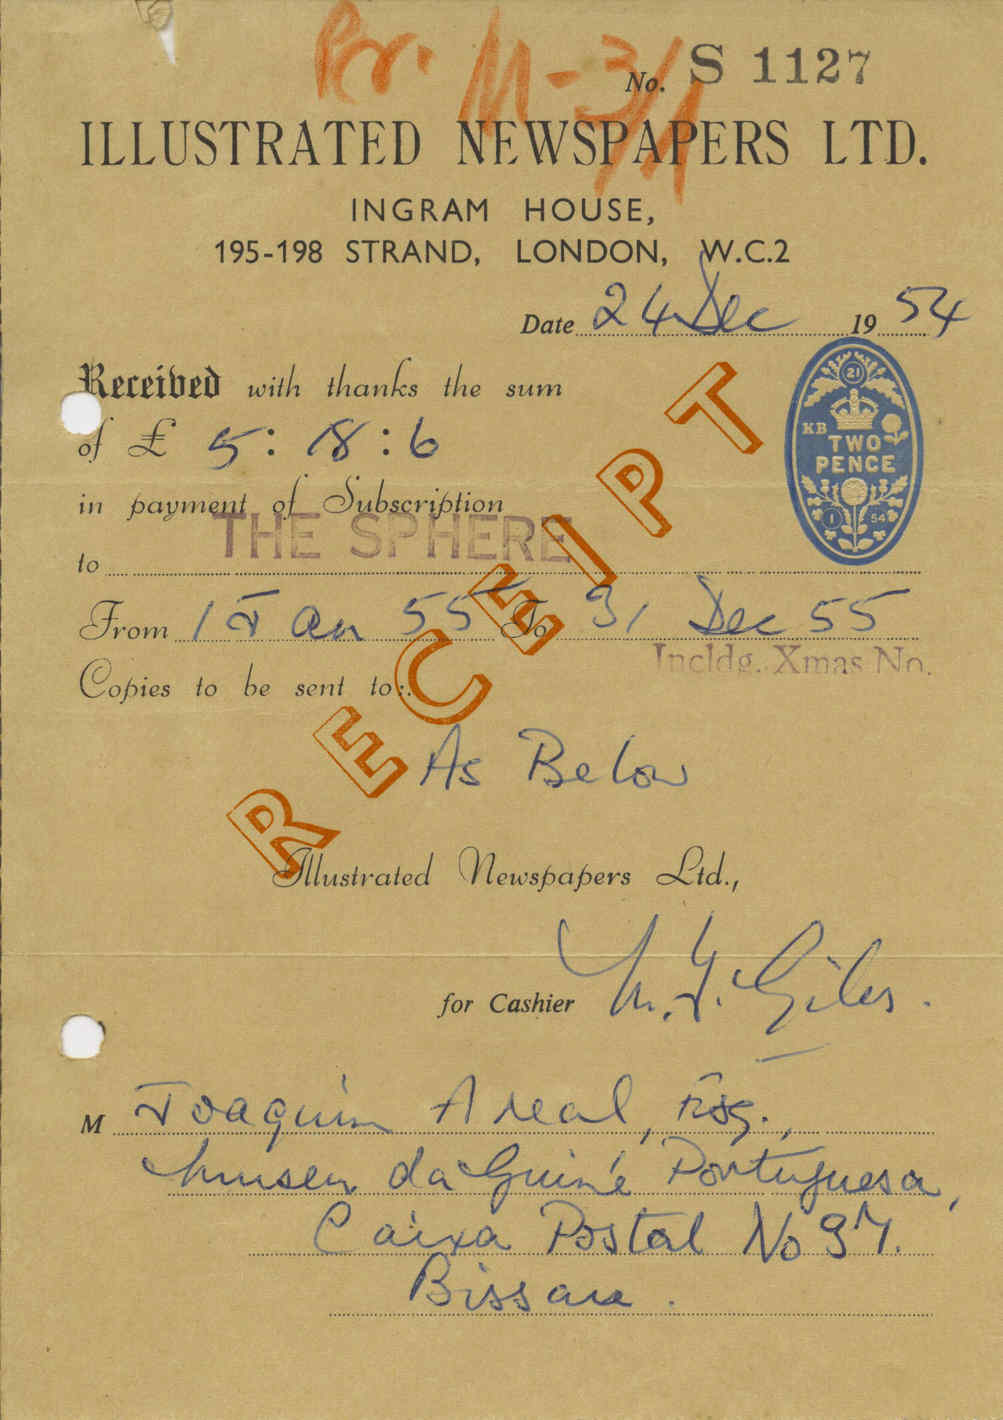 Por. M-3/1
No. S 1127
ILLUSTRATED NEWSPAPERS LTD.
INGRAM HOUSE,
195-198 STRAND, LONDON, W.C.2
Date 24 Dec 1954
Received with thanks the sum
of £ 5:18:6
21
KB
TWO
PENCE
1 54
in payment of Subscription
to THE SPHERE
From 1 Jan 55 To 31 Dec 55
Incldg. Xmas No.
Copies to be sent to:.
As Below
RECEIPT
Illustrated Newspapers Ltd.,
for Cashier M. J. Giles.
M Joaquim Areal, Esq.,
Museu da Guiné Portuguesa,
Caixa Postal No 37.
Bissau.